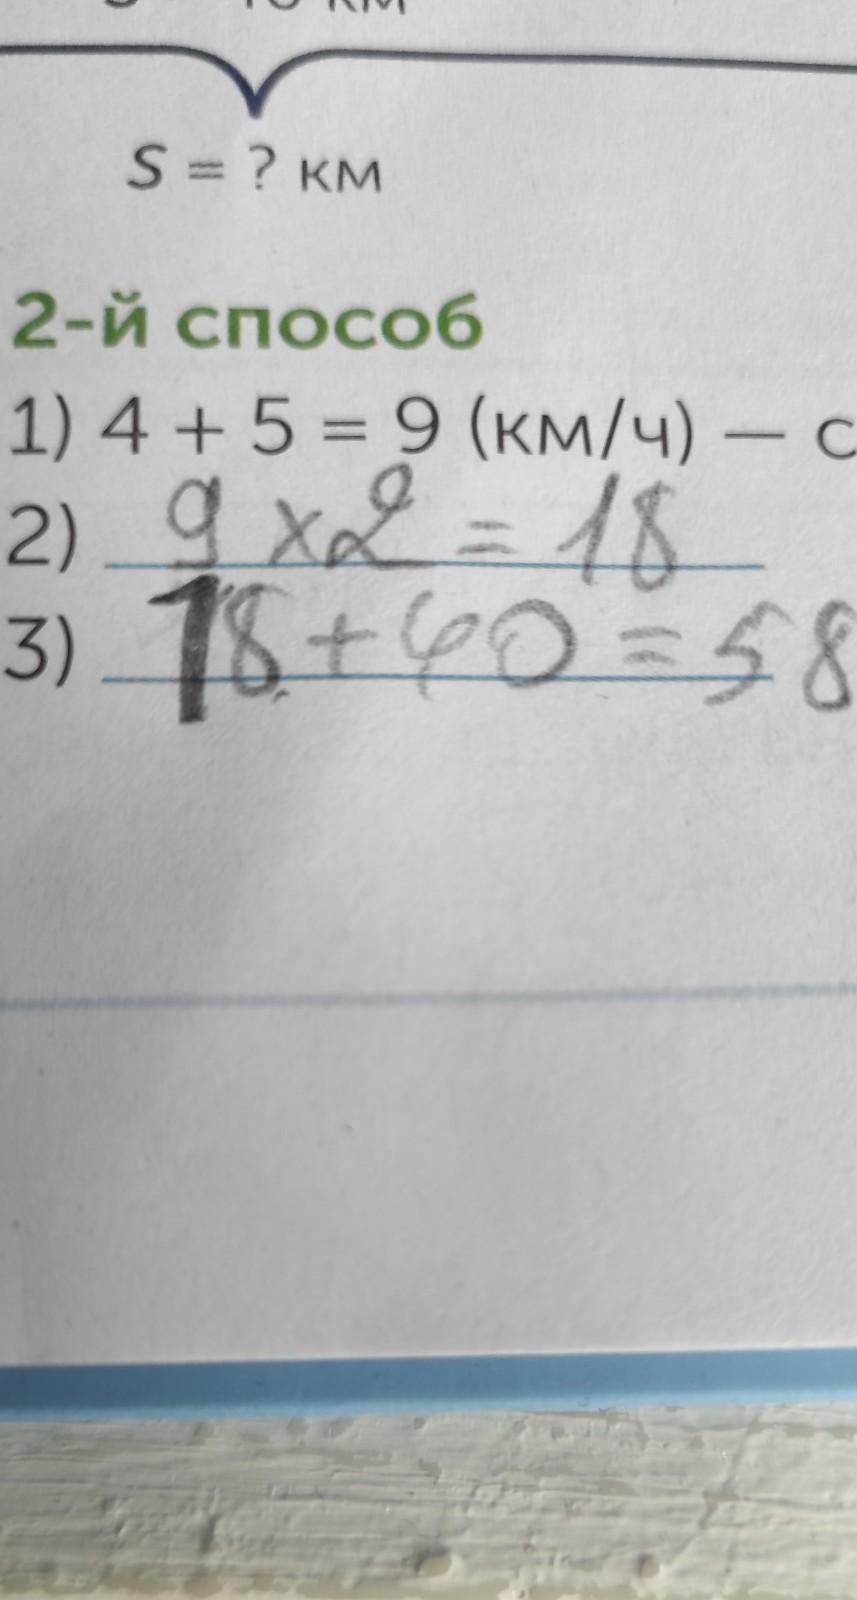 км
S = ? км
2-й способ
1) 4 + 5 = 9 (км/ч) —
2) 9 x 2 = 18
3) 18 + 40 = 58